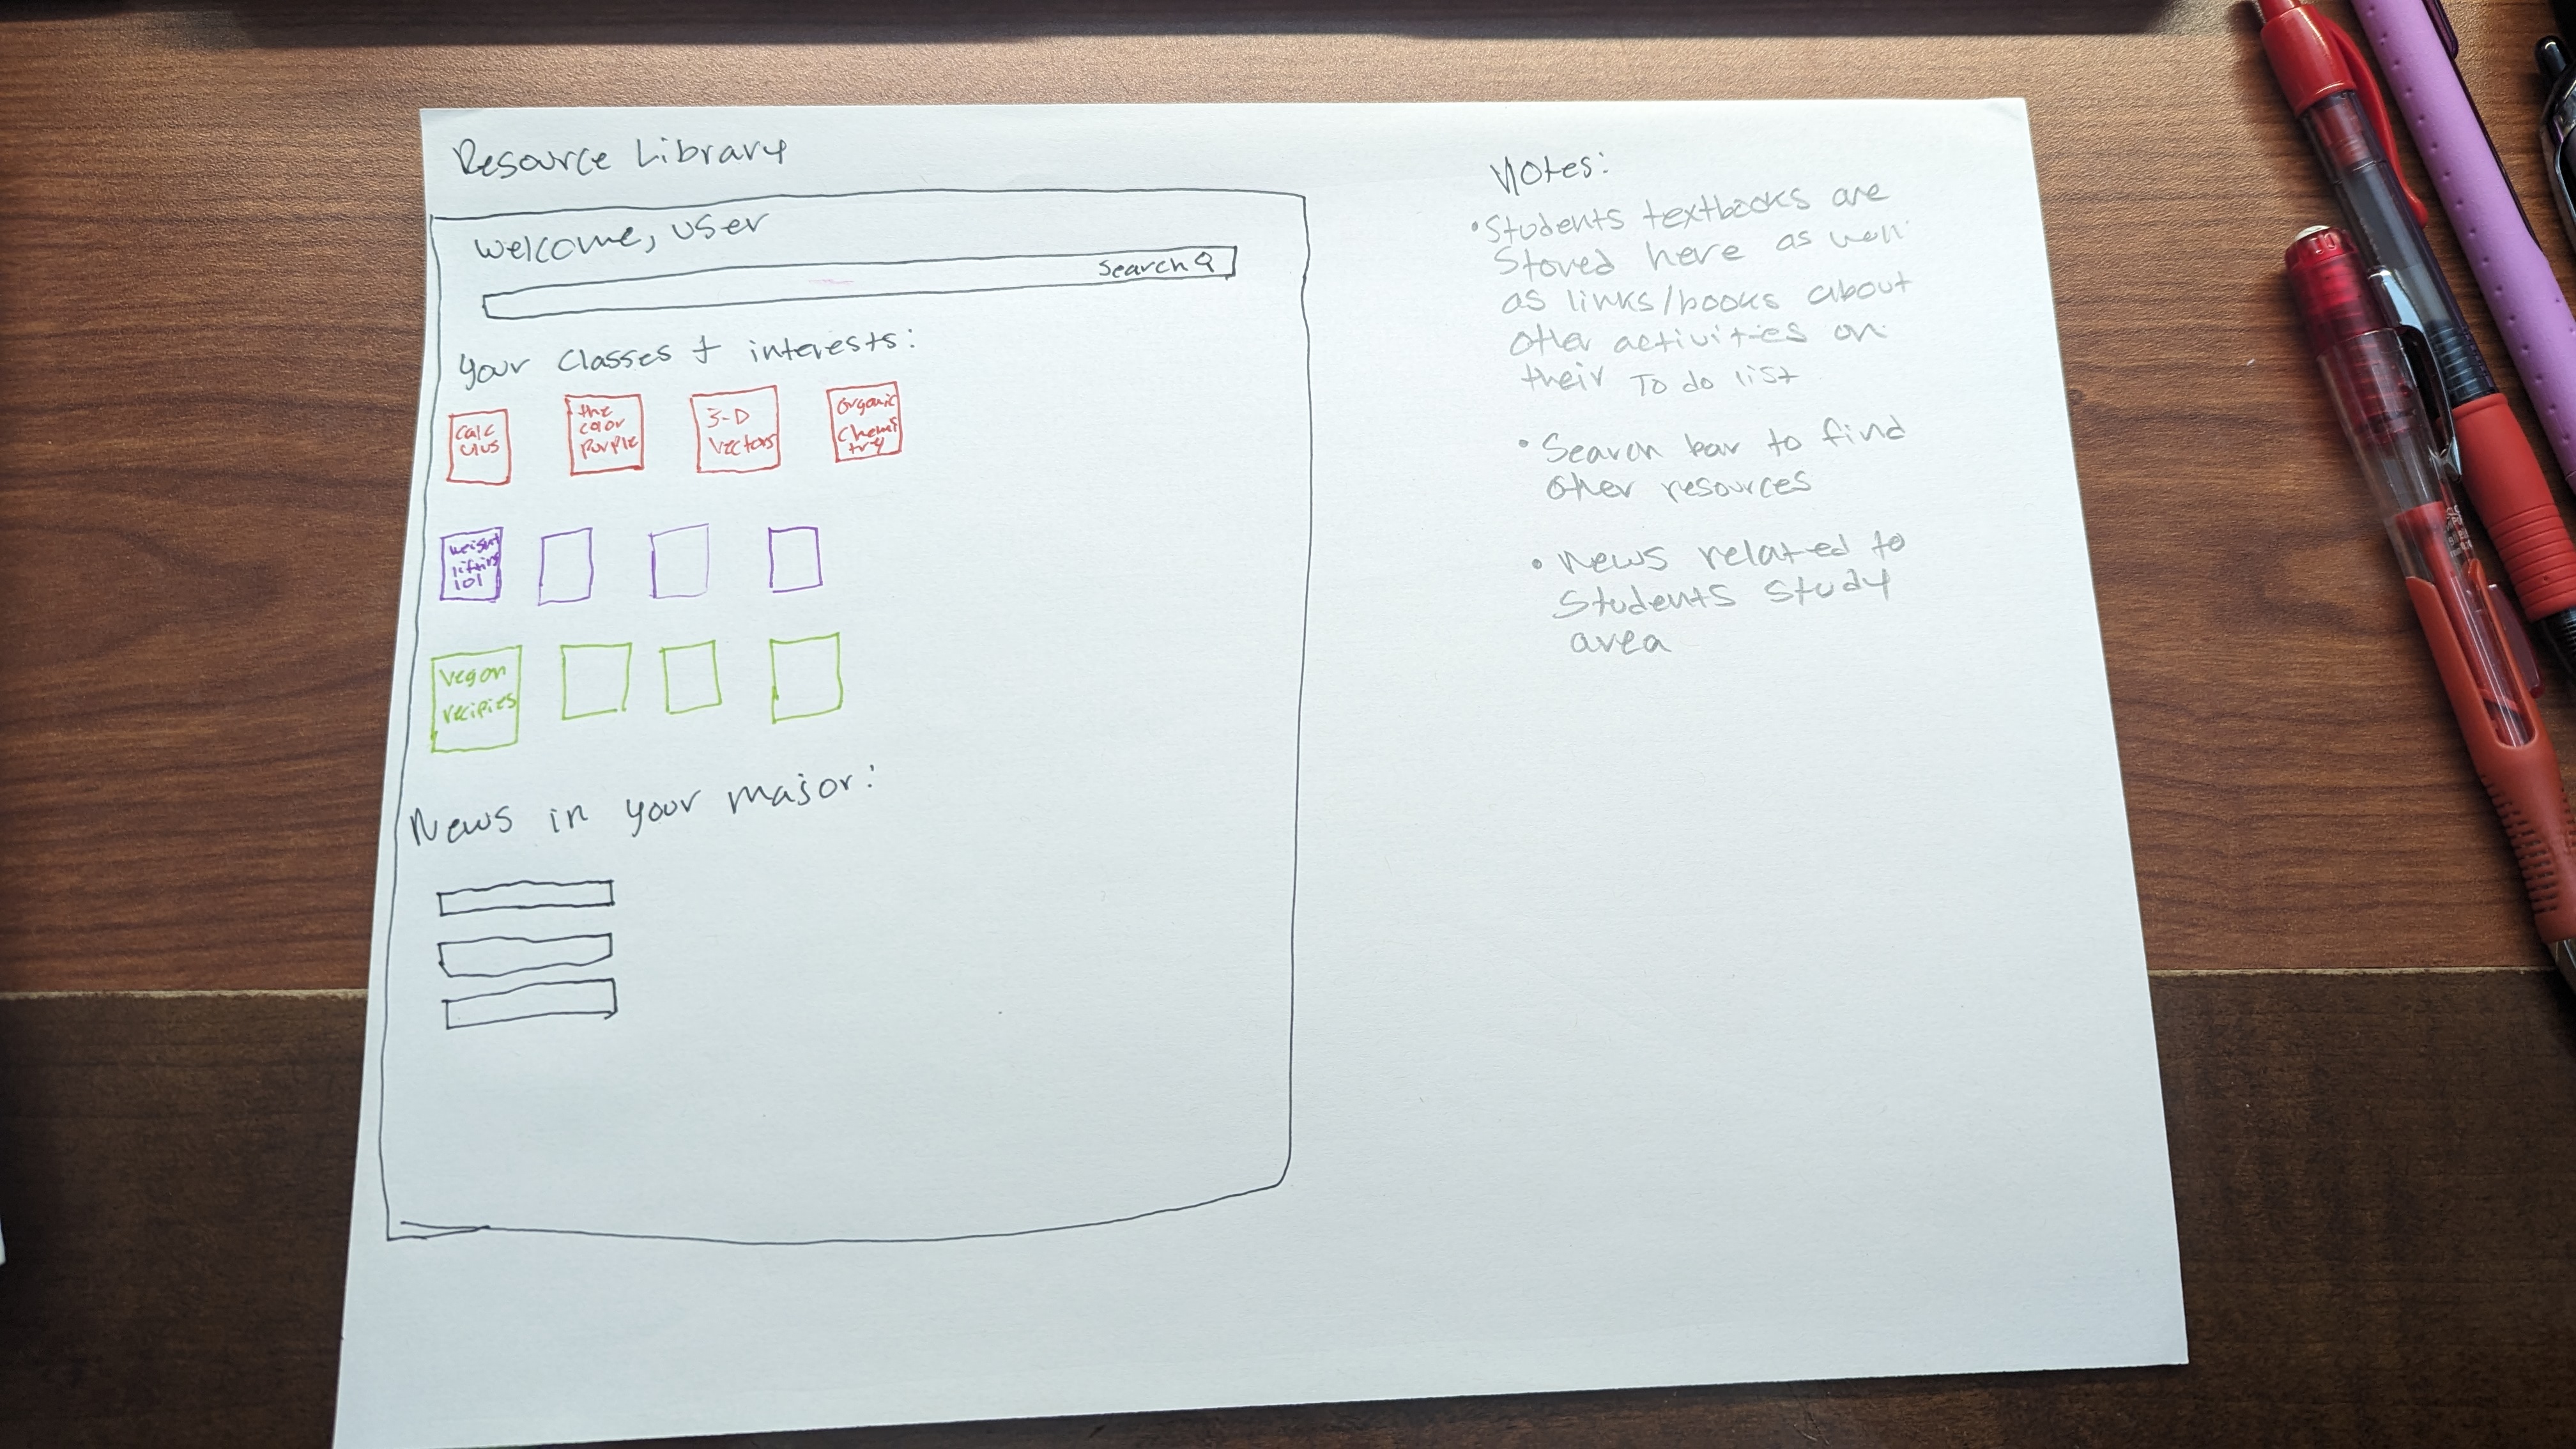 Resource Library
Welcome, User
Search
Your Classes + interests:
Calc
ulus
the
color
Purple
3-D
Vectors
Organic
Chemi
try
weight
lifting
101
Vegan
recipies
News in your major:
Notes:
• Students textbooks are
Stored here as well
as links/books about
other activities on
their To do list
• Search bar to find
other resources
• News related to
Students Study
area